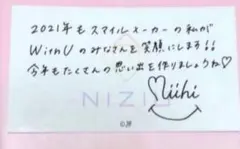 2021年もスマイルメーカーの私が
WithUのみなさんを笑顔にします!!
今年もたくさんの思い出を作りましょうね♡
Miihi
NIZIU